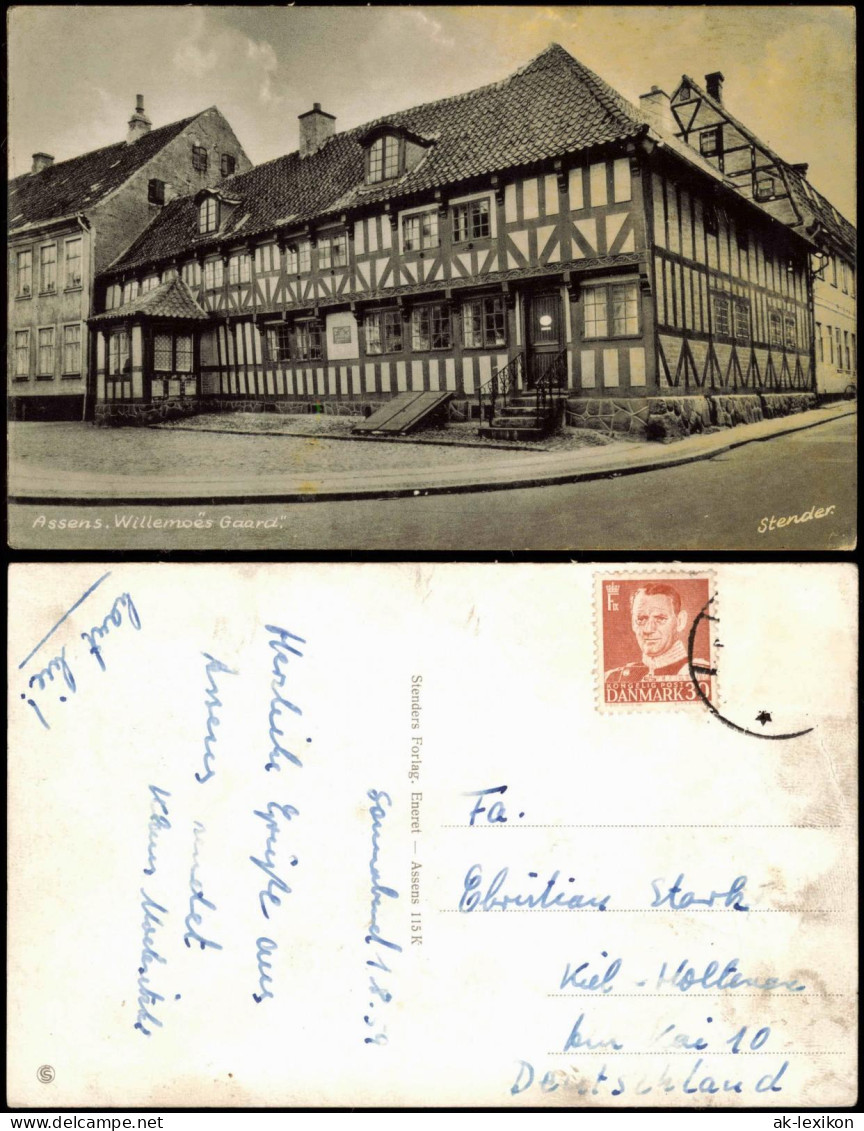 Assens. "Willemoës Gaard".
Stender.
haut hin!
Herzliche Grüße aus
Assens sendet
Klaus
Sonnabend 1.8.59
Stenders Forlag. Eneret — Assens 115 K
F IX
KONGELIG POST
DANMARK 30
Fa.
Christian Stark
Kiel-Holtenau
Kai 10
Deutschland
S
ak-lexikon